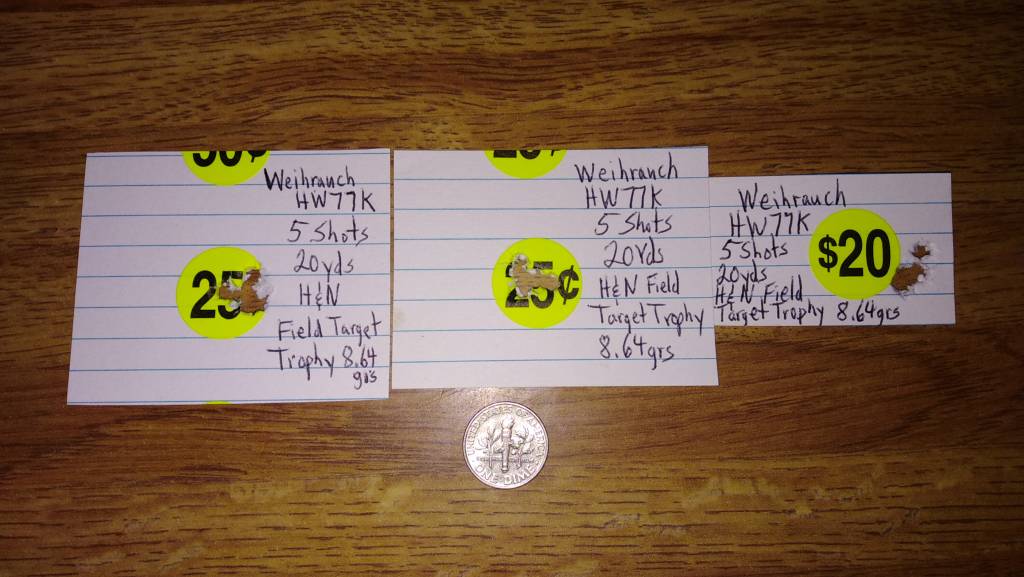 Weihrauch
HW77K
5 Shots
20yds
H&N
Field Target
Trophy 8.64
grs
25
Weihrauch
HW77K
5 Shots
20yds
H&N Field
Target Trophy
8.64grs
25¢
Weihrauch
HW77K
5 Shots
20yds
H&N Field
Target Trophy 8.64grs
$20
UNITED STATES OF AMERICA
ONE DIME